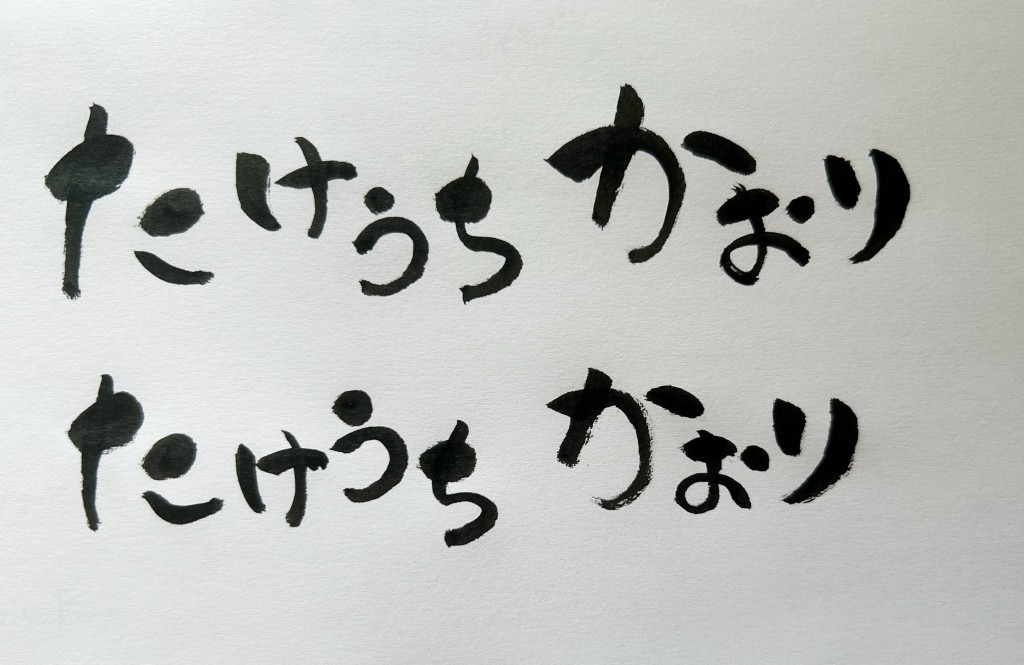 たけうち かおり
たけうち かおり